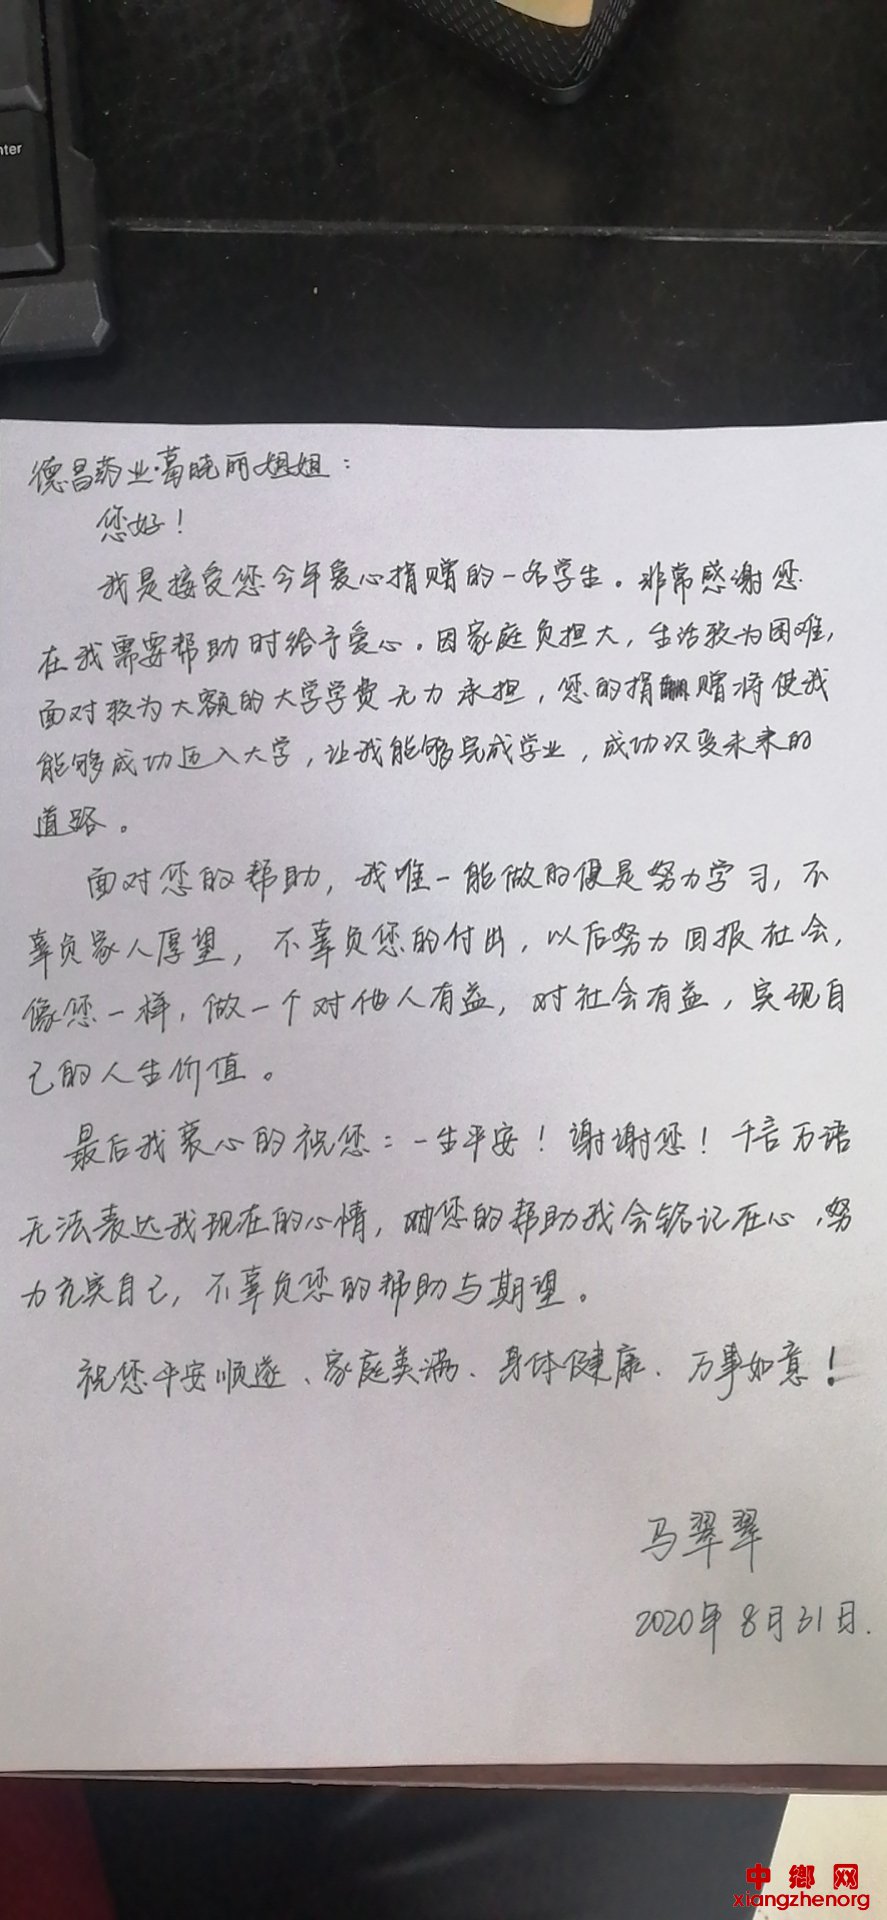 nter
德昌药业·葛晓丽姐姐：
您好！
我是接受您今年爱心捐赠的一名学生。非常感谢您
在我需要帮助时给予爱心。因家庭负担大，生活较为困难，
面对较为大额的大学学费无力承担，您的捐赠将使我
能够成功迈入大学，让我能够完成学业，成功改变未来的
道路。
面对您的帮助，我唯一能做的便是努力学习，不
辜负家人厚望，不辜负您的付出，以后努力回报社会，
像您一样，做一个对他人有益，对社会有益，实现自
己的人生价值。
最后我衷心的祝您：一生平安！谢谢您！千言万语
无法表达我现在的心情，对您的帮助我会铭记在心，努
力充实自己，不辜负您的帮助与期望。
祝您平安顺遂、家庭美满、身体健康、万事如意！
马翠翠
2020年8月31日.
中鄉网
xiangzhenorg